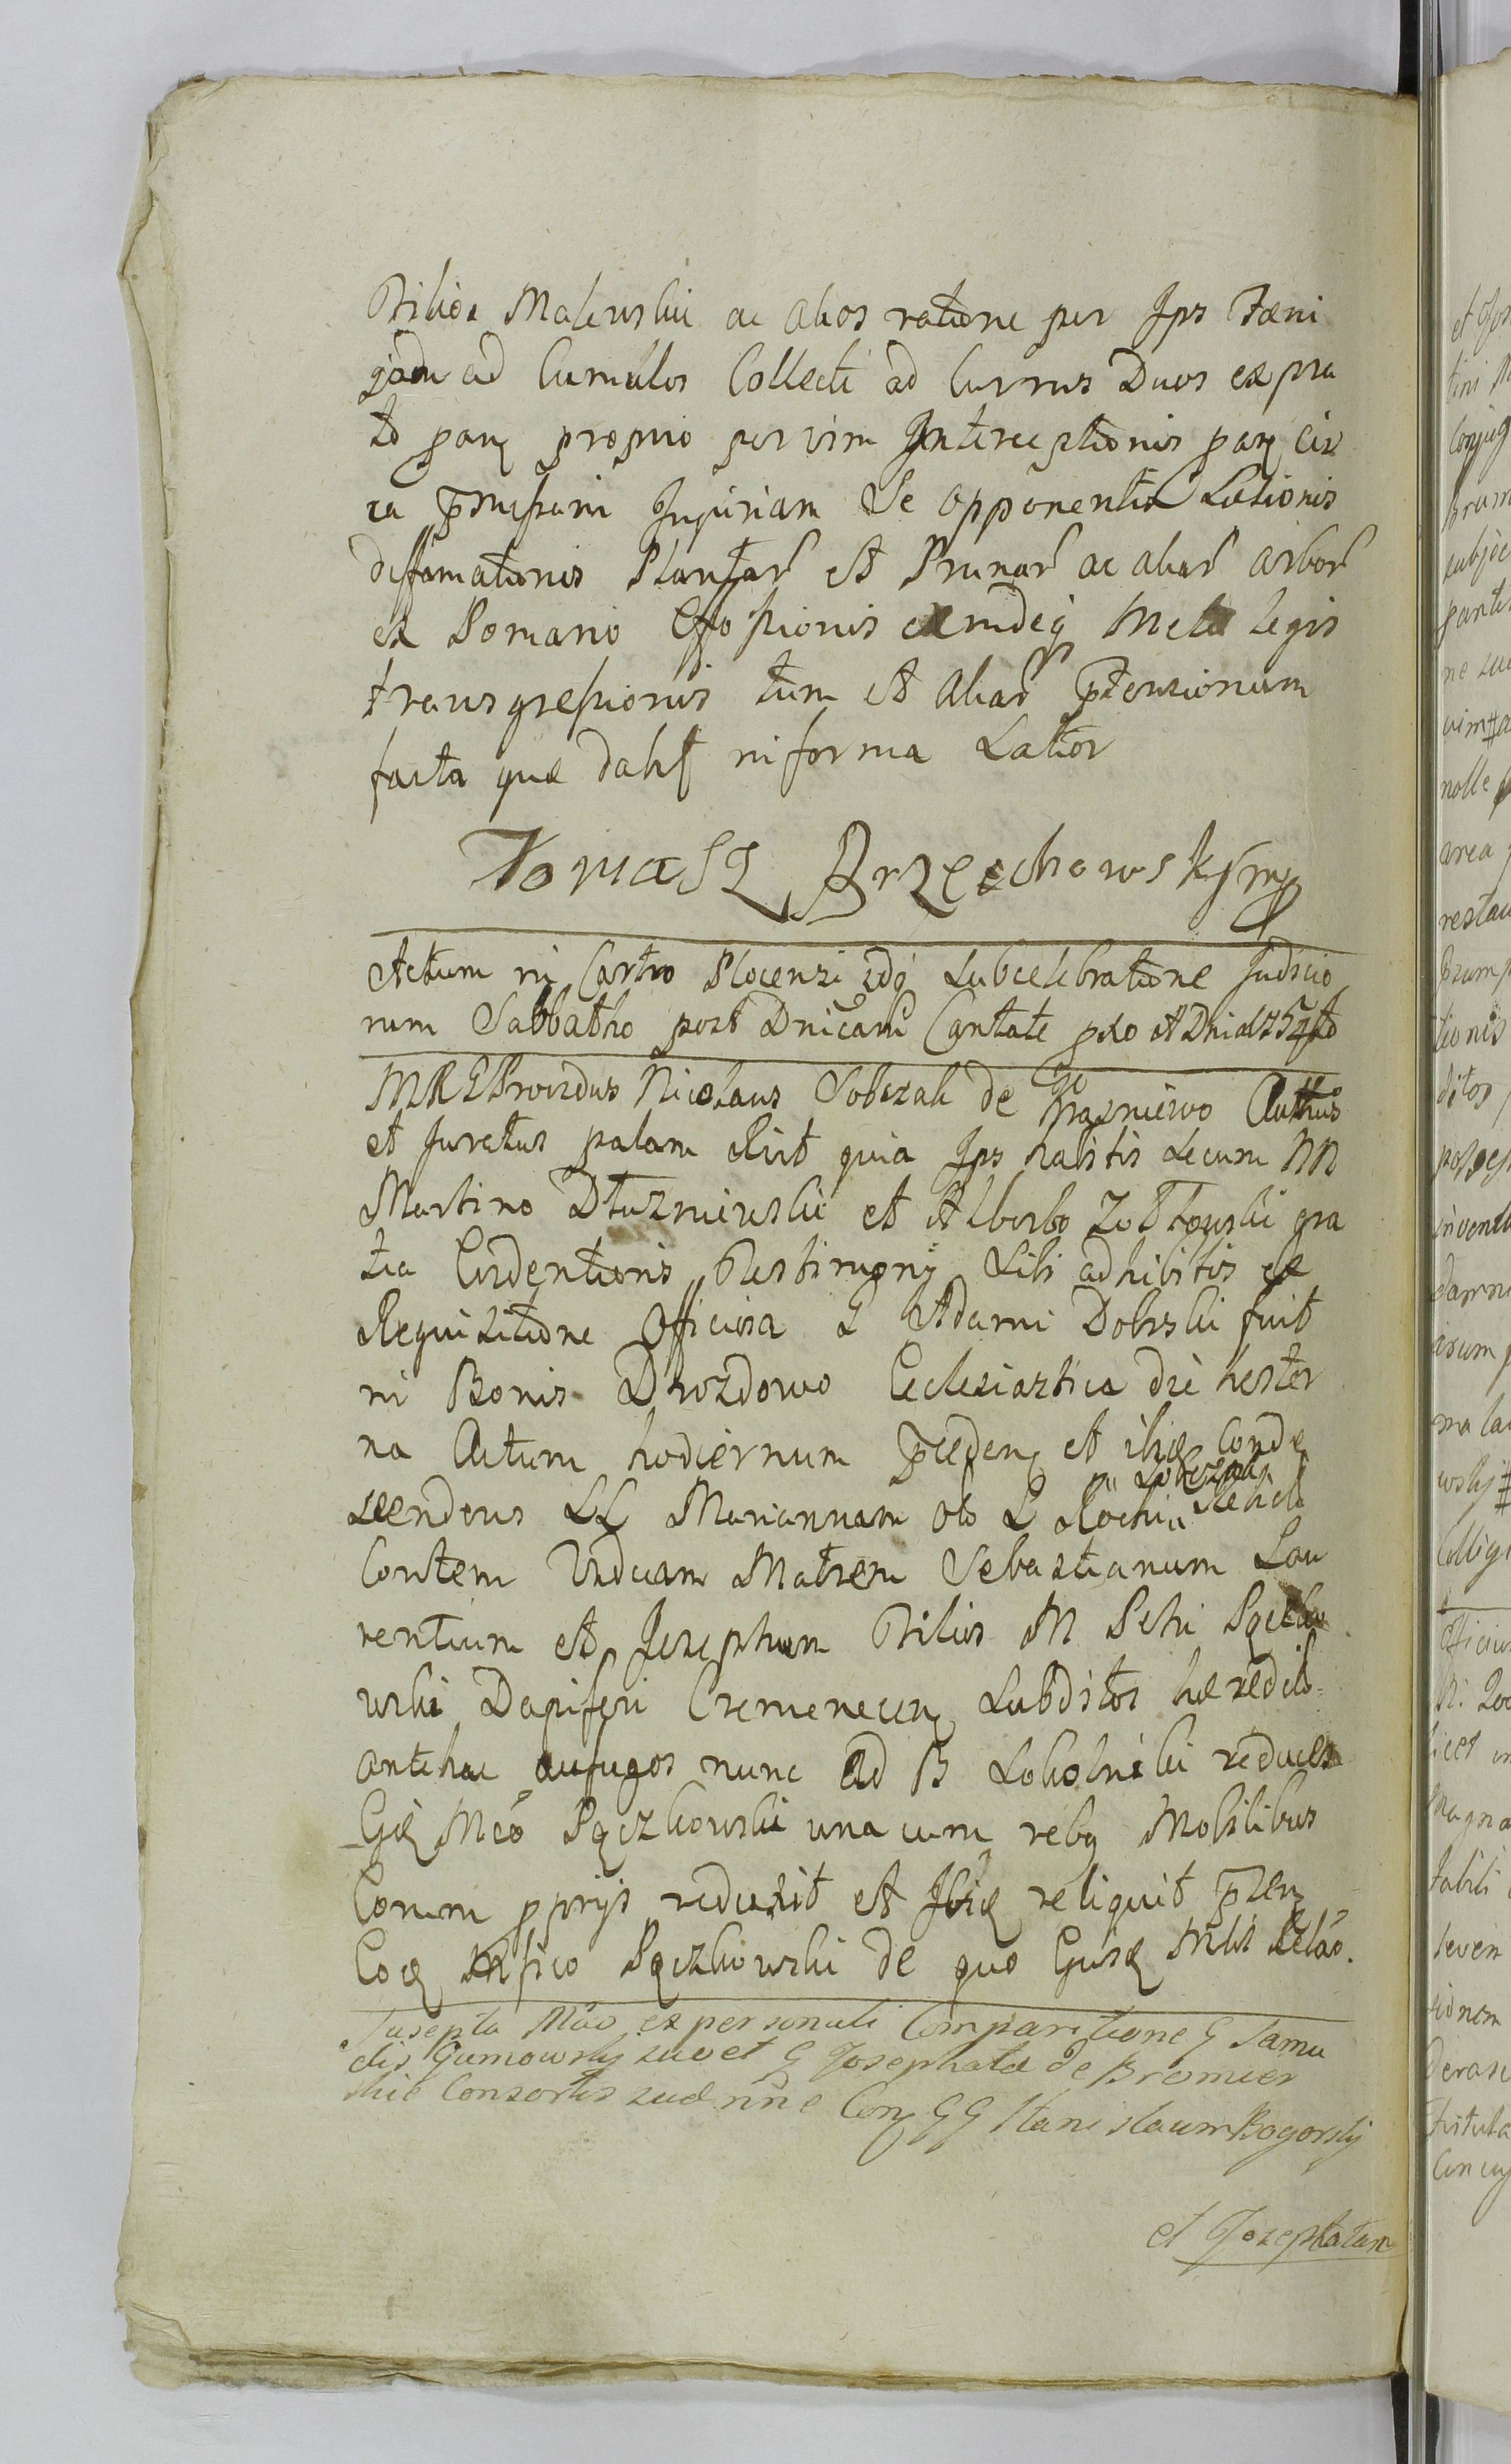 Filios Malewskie ac alios ratione per Ips Fæni
jam ad Cumulos Collecti ad Currus Duos ex pra
to parq proprio per vim Interceptionis parq cir
ca Injuriam Se opponentis Læsionis
diffamationis Plantar et Prunar ac aliar arbor
ex Pomario Effossionis eamdeq Metæ legis
transgressionis tum et aliar ptensionum
facta quæ in forma Latior
Tomasz Brzechowski mp
Actum in Castro Plocensi idq sub celebratione Judicio
rum Sabbatho post Dnicam Cantate pxo A Dni
MRG Providus Nicolaus Sobczak de Krasniewo Authus
et Juratus palam Rcit quia Ips habitis secum NN
Martino Dłuzniewski et Alberto Zołtowski gra
tia Evidentioris Testimony sibi adhibitis ex
Requisitione Officiosa G Adami Dobrski fuit
in Bonis Drozdowo Ecclesiastica die hester
na Actum hodiernum pceden et ibiq Conde
scendens LL Mariannam olo L Rochi Sobczak Relicto
Constem Viduam Matrem Sebastianum Lau
rentium et Josephum Filios M Pchi
wski Dapiferi Cremenecen Subditos hæredit
antehac aufugos nunc ad B Sokolniki reduces
Gq Mco Pączkowski una cum rebq Mobilibus
Eorum pprijs reduxit et Ibiq reliquit pzen
Eoq Mfico Pączkowski de quo Ejusq Mlis Relao.
Suscepta Mao ex personali Comparitione G Samu
elis Gumowsky suo et G Josephatæ de Bromier
skie Consortis suæ nne Con GG Stanislaum Bogorsky
et Josephatam